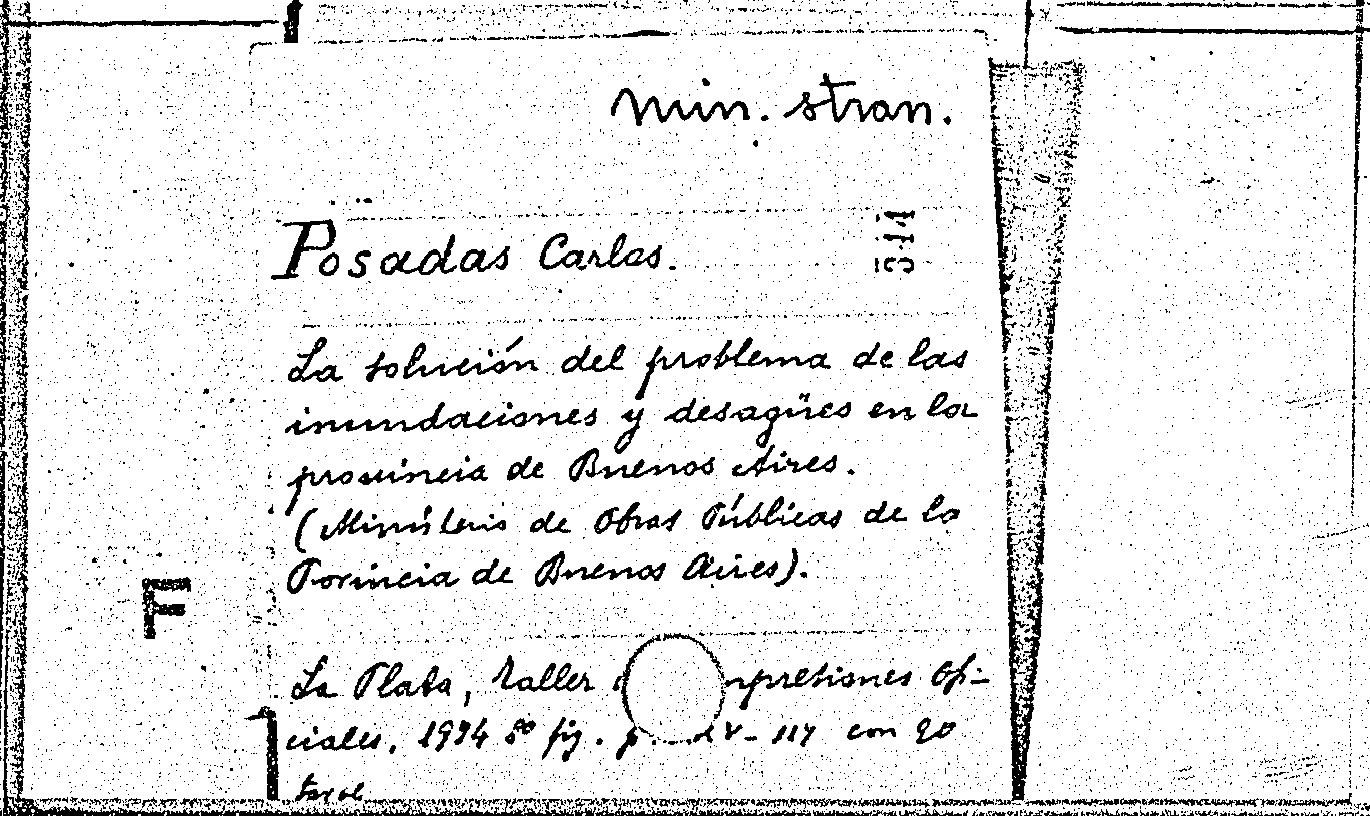 min. stran.
Posadas Carlos.
La solución del problema de las
inundaciones y desagües en la
provincia de Buenos Aires.
(Ministerio de Obras Públicas de la
Provincia de Buenos Aires).
F
La Plata, taller impresiones Ofi-
ciales, 1934 8º fig. p. 117 con 90